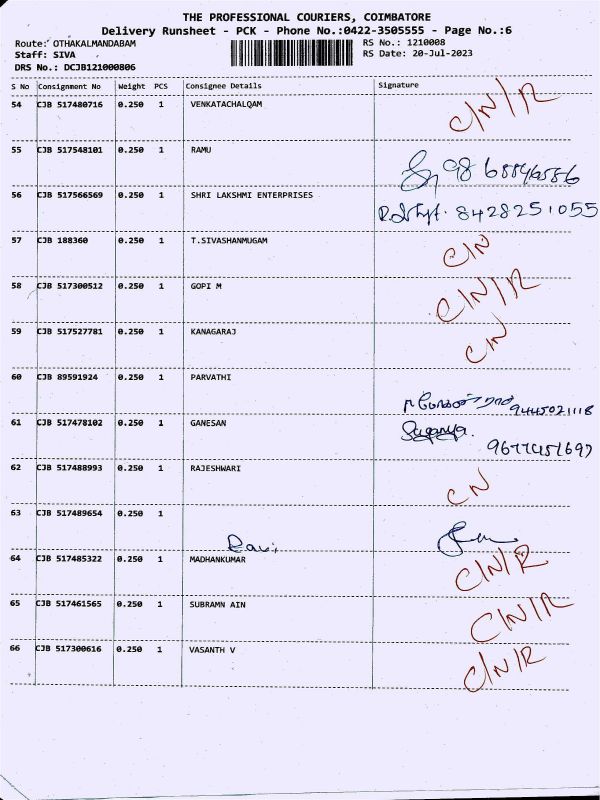 THE PROFESSIONAL COURIERS, COIMBATORE
Delivery Runsheet - PCK - Phone No.:0422-3505555 - Page No.:6
Route: OTHAKALMANDABAM RS No.: 1210008
Staff: SIVA RS Date: 20-Jul-2023
DRS No.: DCJB121000806
S No Consignment No Weight PCS Consignee Details Signature
54 CJB 517480716 0.250 1 VENKATACHALQAM C/N/R
55 CJB 517548101 0.250 1 RAMU
56 CJB 517566569 0.250 1 SHRI LAKSHMI ENTERPRISES 8428251055
57 CJB 188360 0.250 1 T.SIVASHANMUGAM C/N
58 CJB 517300512 0.250 1 GOPI M C/N/R
59 CJB 517527781 0.250 1 KANAGARAJ C/N
60 CJB 89591924 0.250 1 PARVATHI
9445021118
61 CJB 517478102 0.250 1 GANESAN Suganya.
62 CJB 517488993 0.250 1 RAJESHWARI CN
63 CJB 517489654 0.250 1
Ravi
64 CJB 517485322 0.250 1 MADHANKUMAR C/N/R
65 CJB 517461565 0.250 1 SUBRAMN AIN C/N/R
66 CJB 517300616 0.250 1 VASANTH V C/N/R